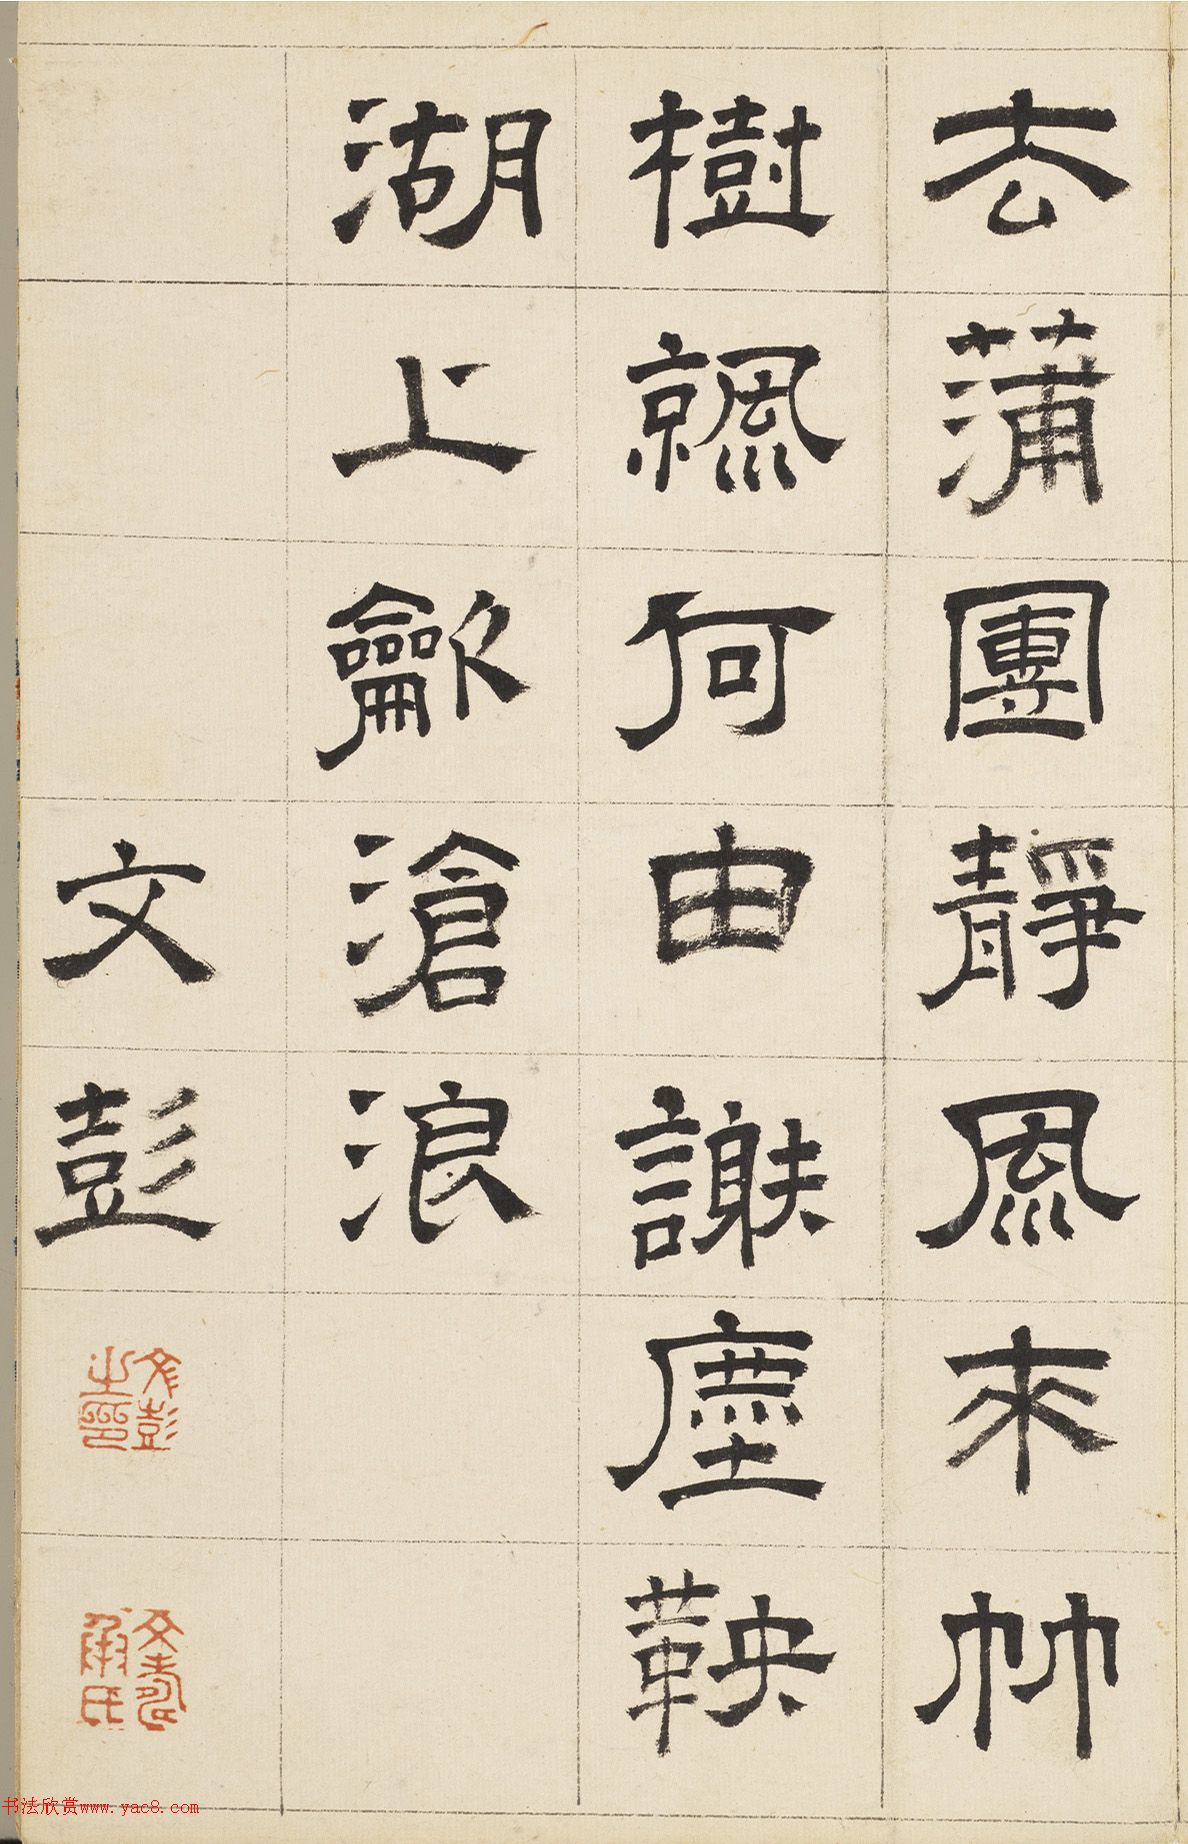 去蒲團靜風來竹
樹何由謝塵鞅
湖上龡滄浪
文彭
文彭之印
文壽承氏
书法欣赏www.yac8.com